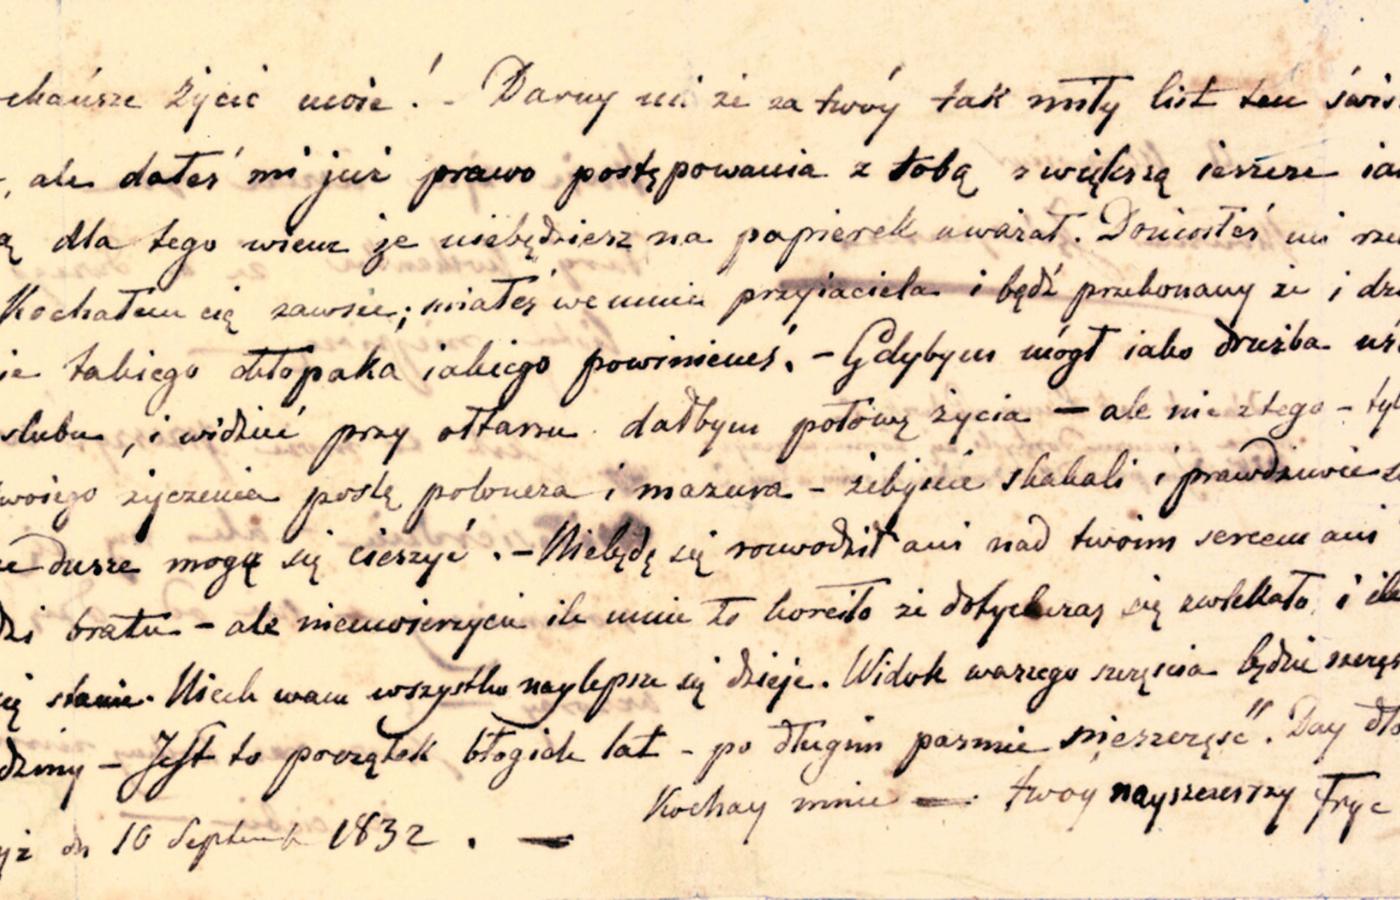 chańsze życie moie! - Daruy mi że za twóy tak miły list ten świs
, ale dałeś mi już prawo postępowania z tobą z większą ieszcze iak
ą dla tego wiem że niebędziesz na papierek uważał. Doniosłeś mi rzec
Kochałem cię zawsze; miałeś we mnie przyiaciela i bądź przekonany że i dzi
ie takiego chłopaka iakiego powinieneś. - Gdybym mógł iako drużba
slubu, i widzieć przy ołtarzu dałbym połowę życia - ale nic z tego - tyl
twoiego życzenia poslę poloneza i mazura - żebyście skakali i prawdziwie
ze dusze mogły się cieszyć. - Niebędę się rozwodził ani nad twoim sercem ani
dzi bratu - ale niewierzycie ile mnie to korciło że dotychczas się zwlekało, i ile
ię stanie. Niech wam wszystko naylepsze się dzieje. Widok waszego szczęścia będzie szczęś
dziny - Jest to początek błogich lat - po długim pasmie nieszczęść". Day
Kochay mnie - twoy nayszczerszy Fryc
yż dn 10 Septemb 1832. -